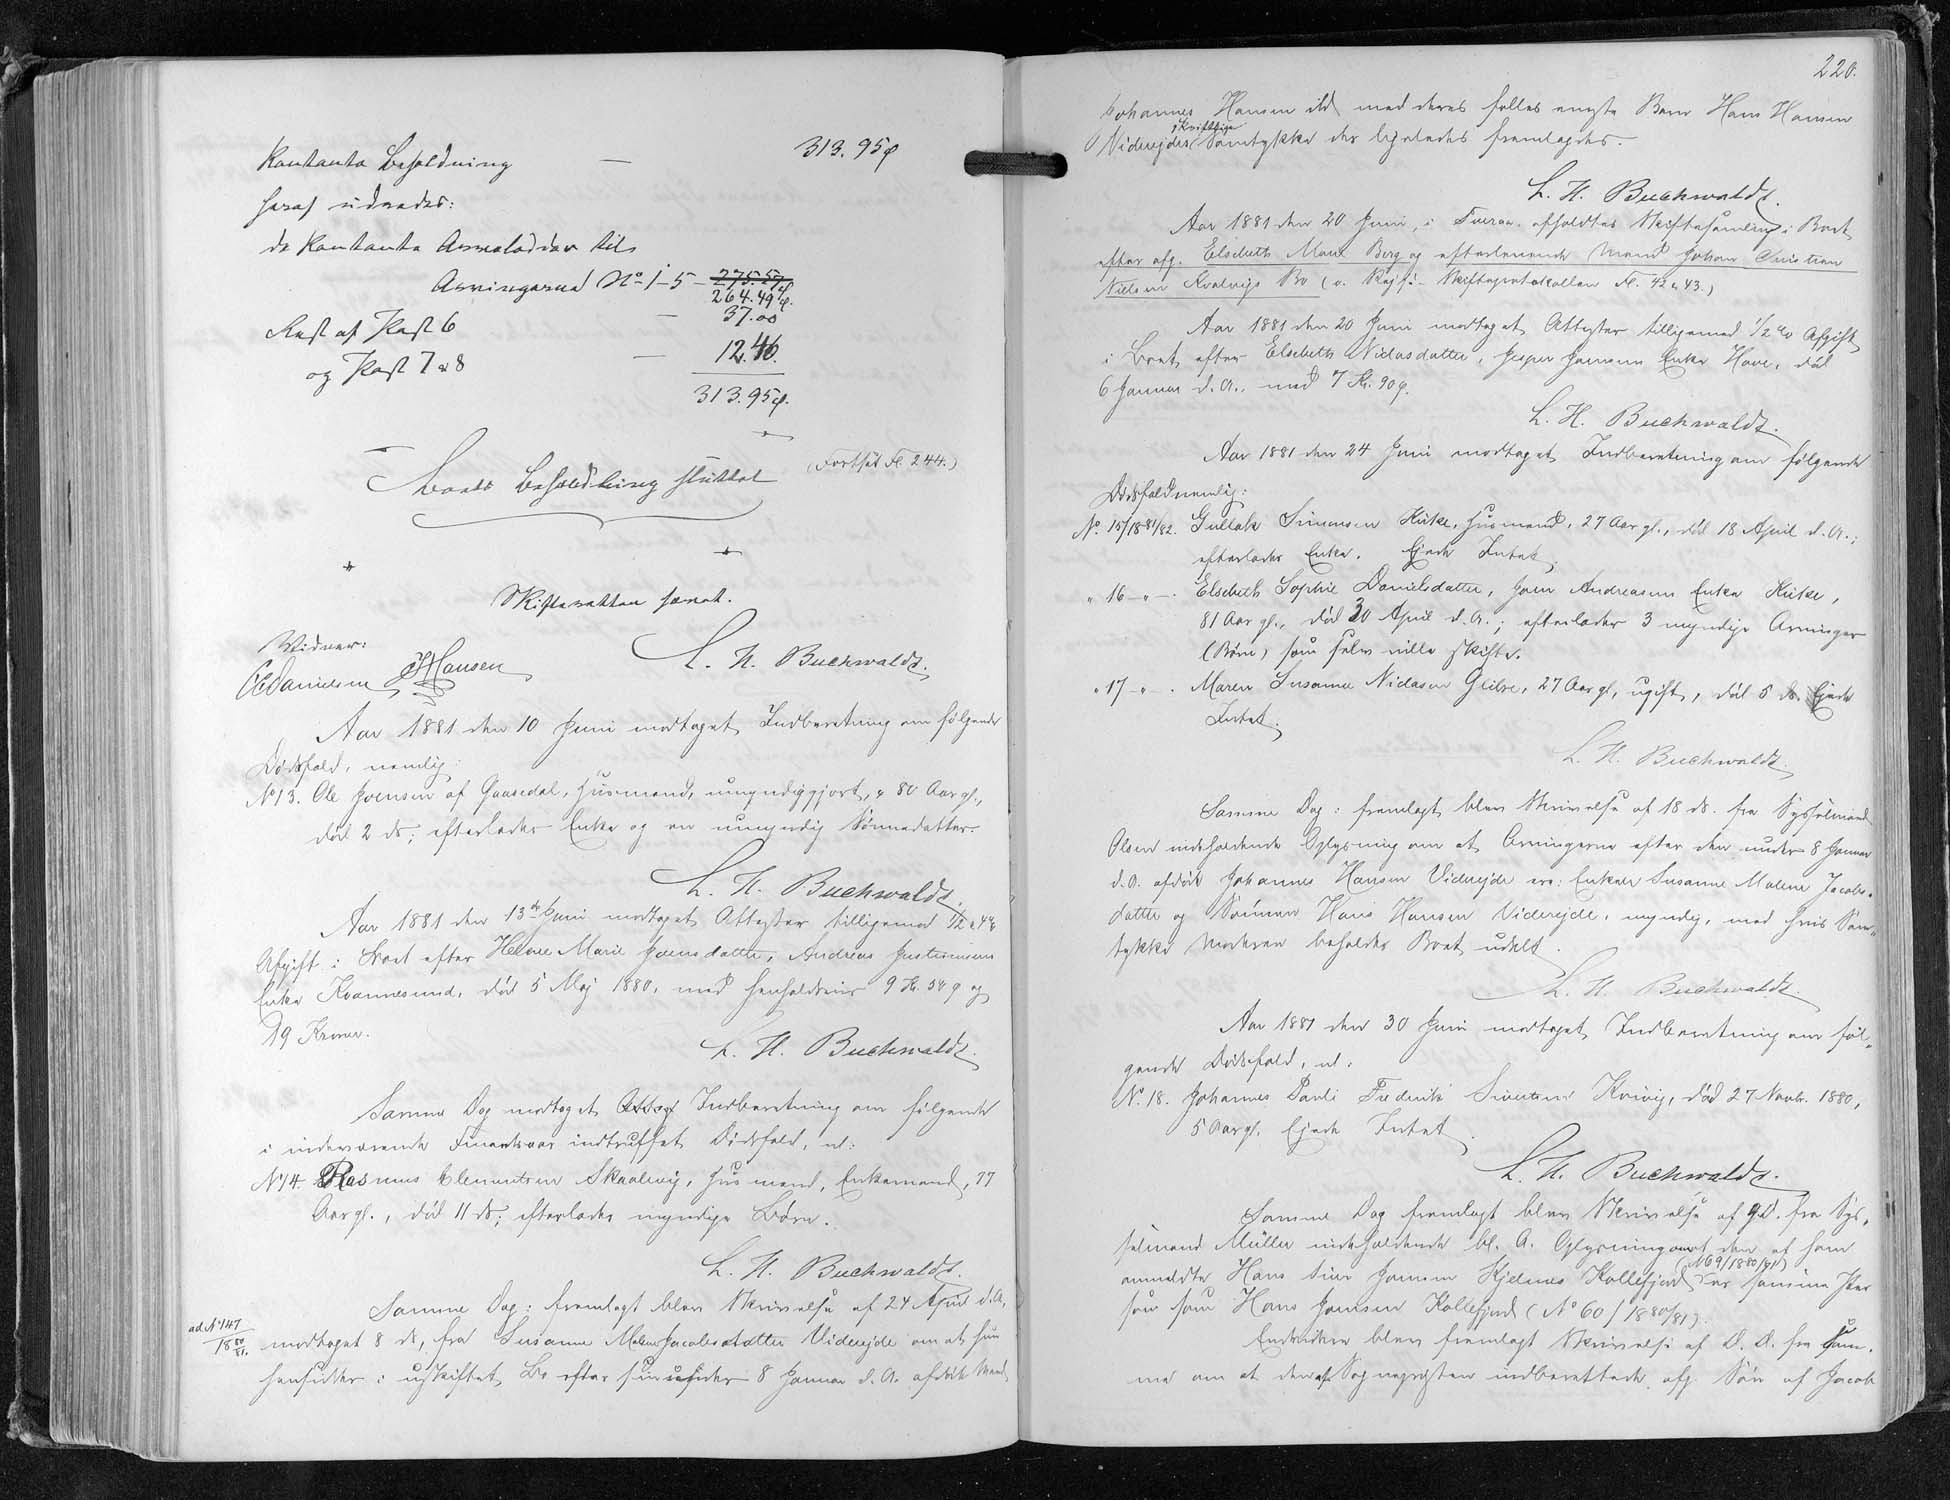 Kontante Beholdning — 313.95ø
heraf udredes:
de kontante Arvelodder til
Arvingerne No 1-5 - 275.57ø
264.49ø.
Rest af Post 6 — 37.00
og Post 7 & 8 — 12.46.
313.95ø.
Boets Behandling sluttet (Fortsat Fl. 244.)
Skifteretten hævet.
Vidner:
Danielsen Hansen L. H. Buchwaldt.
Aar 1881 den 10 Juni modtaget Indberetning om følgende
Dødsfald, nemlig:
No 13. Ole Joensen af Gaasedal, Husmand, umyndiggjort, 80 Aar gl.,
død 2 ds; efterlader Enke og en umyndig Sønnedatter.
L. H. Buchwaldt.
Aar 1881 den 13de Juni modtaget Attester tilligemed 1/2 & 4%
Afgift i Boet efter Helene Marie Joensdatter, Andreas Justinusens
Enke Kvannesund, død 5 Maj 1880, med henholdsvis 9 Kr. 54 ø og
79 Kroner.
L. H. Buchwaldt.
Samme Dag modtaget Indberetning om følgende
i indeværende Finantsaar indtruffet Dødsfald, nl:
No 14. Rasmus Clementsen Skaalevig, Husmand, Enkemand, 77
Aar gl., død 11 ds; efterlader myndige Børn.
L. H. Buchwaldt.
Samme Dag: fremlagt blev Skrivelse af 24 April d.A.,
ad. No 147
1880/81.
modtaget 8 ds, fra Susanne Malene Jacobsdatter Viderejde om at hun
hensidder i uskiftet Bo efter sin under 8 Januar d. A. afdøde Mand
220.
Johannes Hansen ibd med deres fælles eneste Barn Hans Hansen
skriftlige
Viderejdes Samtykke der ligeledes fremlagdes.
L. H. Buchwaldt.
Aar 1881 den 20 Juni, i Fueraa. afholdtes Skiftesamling i Boet
efter afg. Elsebeth Marie Berg og efterlevende Mand Johan Christian
Nielsen Kvalvigs Bo (v. Rejse-Skifteprotokollen Fl. 42 & 43.)
Aar 1881 den 20 Juni modtaget Attester tilligemed 1/2 % Afgift
i Boet efter Elsebeth Niclasdatter, Jesper Joensens Enke Hove, død
6 Januar d. A., med 7 Kr. 90 ø.
L. H. Buchwaldt.
Aar 1881 den 24 Juni modtaget Indberetning om følgende
Dødsfald nemlig:
No. 15/1881/82. Gullak Simonsen Kirke, Husmand, 27 Aar gl., død 18 April d. A.;
efterlader Enke. Ejede Intet.
" 16 - " - . Elsebeth Sophie Danielsdatter, Joen Andreasens Enke Kirke,
81 Aar gl., død 30 April d. A.; efterlader 3 myndige Arvinger
(Børn) som selv ville skifte.
" 17 - " - . Maren Susanne Niclasen Glibre, 27 Aar gl, ugift, død 5 ds. Ejede
Intet.
L. H. Buchwaldt.
Samme Dag: fremlagt blev Skrivelse af 18 ds. fra Sysselmand
Olsen indeholdende Oplysning om at Arvingerne efter den under 8 Januar
d. A. afdøde Johannes Hansen Viderejde ere: Enken Susanne Malene Jacobs-
datter og Sønnen Hans Hansen Viderejde, myndig, med hvis Sam-
tykke Moderen beholder Boet udelt.
L. H. Buchwaldt.
Aar 1881 den 30 Juni modtaget Indberetning om føl-
gende Dødsfald, nl.
No. 18. Johannes Pauli Frederik Sivertsen Kvivig, død 27 Novbr. 1880,
5 Aar gl. Ejede Intet.
L. H. Buchwaldt.
Samme Dag fremlagt blev Skrivelse af 9 d. fra Sys-
selmand Müller indeholdende bl. A. Oplysning om at den af ham
(No 69/1880/81)
anmeldte Hans Joensen Hjelmes Kollefjord er samme Per-
son som Hans Joensen Kollefjord (No 60/1880/81).
Endvidere blev fremlagt Skrivelse af D. D. fra Sam-
me om at den af Sognepræsten indberettede afg. Søn af Jacob